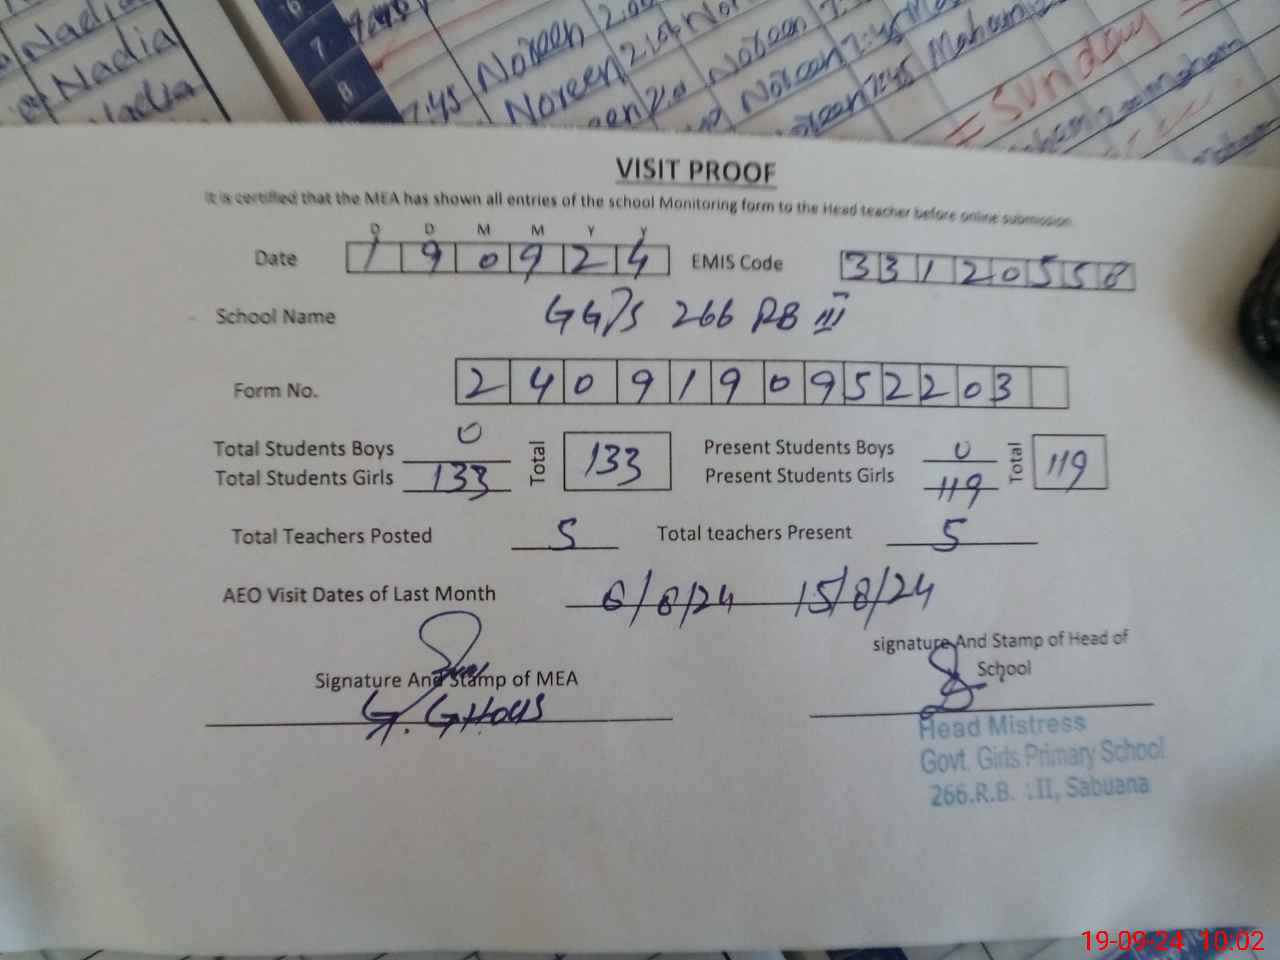 Nadia
Nadia
7
8
7:45 Noreen
Noreen
Noreen
Noreen 7:45
7:45 Maham
= Sunday =
VISIT PROOF
It is certified that the MEA has shown all entries of the school Monitoring form to the Head teacher before online submission
D D M M Y Y
Date 1 9 0 9 2 4 EMIS Code 3 3 1 2 0 5 5 8
School Name GGPS 266 RB III
Form No. 2 4 0 9 1 9 0 9 5 2 2 0 3
Total Students Boys 0 Total 133 Present Students Boys 0 Total 119
Total Students Girls 133 Present Students Girls 119
Total Teachers Posted 5 Total teachers Present 5
AEO Visit Dates of Last Month 6/8/24 15/8/24
signature And Stamp of Head of
School
Signature And Stamp of MEA
G. GHOUS
Head Mistress
Govt. Girls Primary School
266.R.B. III, Sabuana
19-09-24 10:02